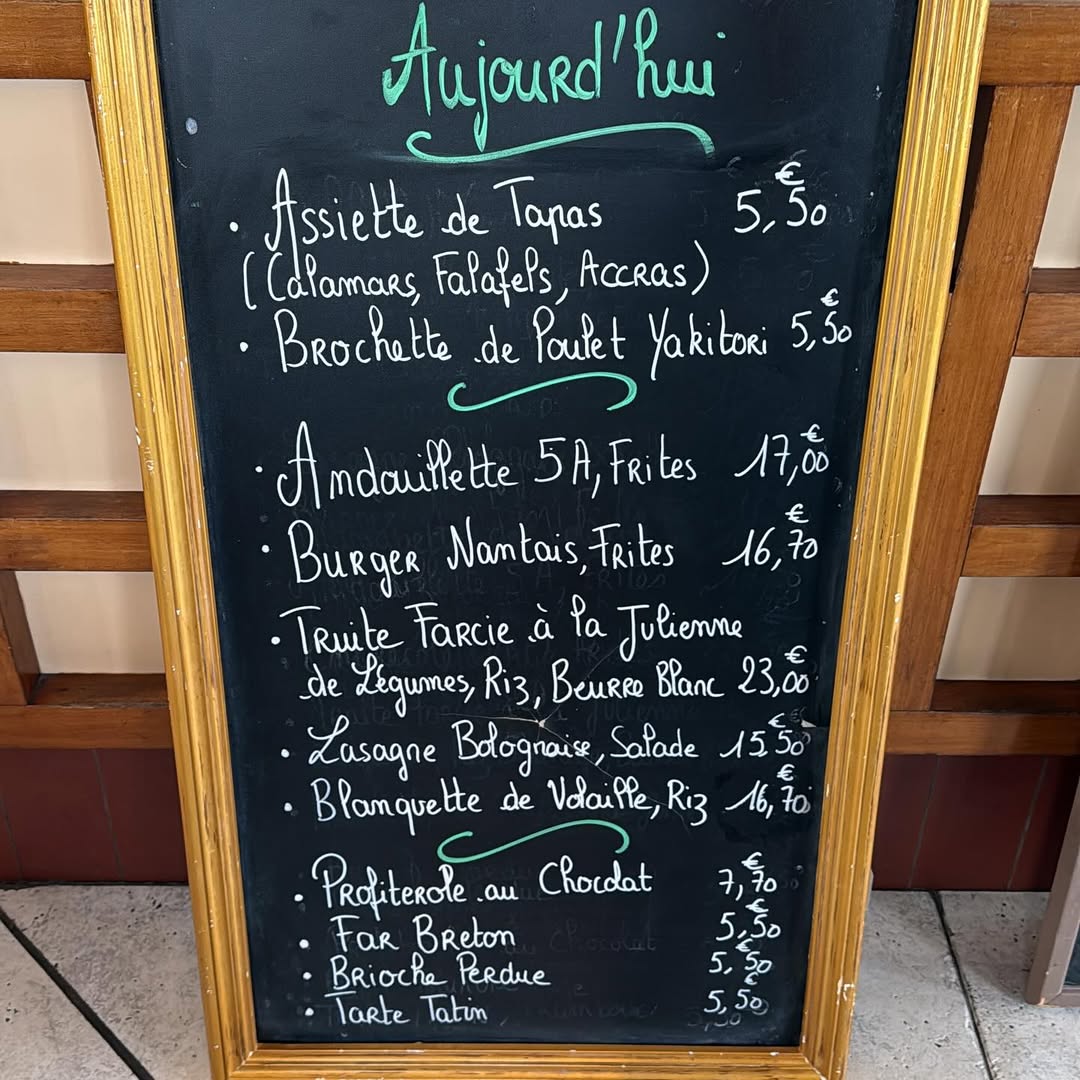 Aujourd'hui
• Assiette de Tapas 5,50€
(Calamars, Falafels, Accras)
• Brochette de Poulet Yakitori 5,50€
• Andouillette 5A, Frites 17,00€
• Burger Nantais, Frites 16,70€
• Truite Farcie à la Julienne
de Légumes, Riz, Beurre Blanc 23,00€
• Lasagne Bolognaise, Salade 15,50€
• Blanquette de Volaille, Riz 16,70€
• Profiterole au Chocolat 7,70€
• Far Breton 5,50€
• Brioche Perdue 5,50€
• Tarte Tatin 5,50€